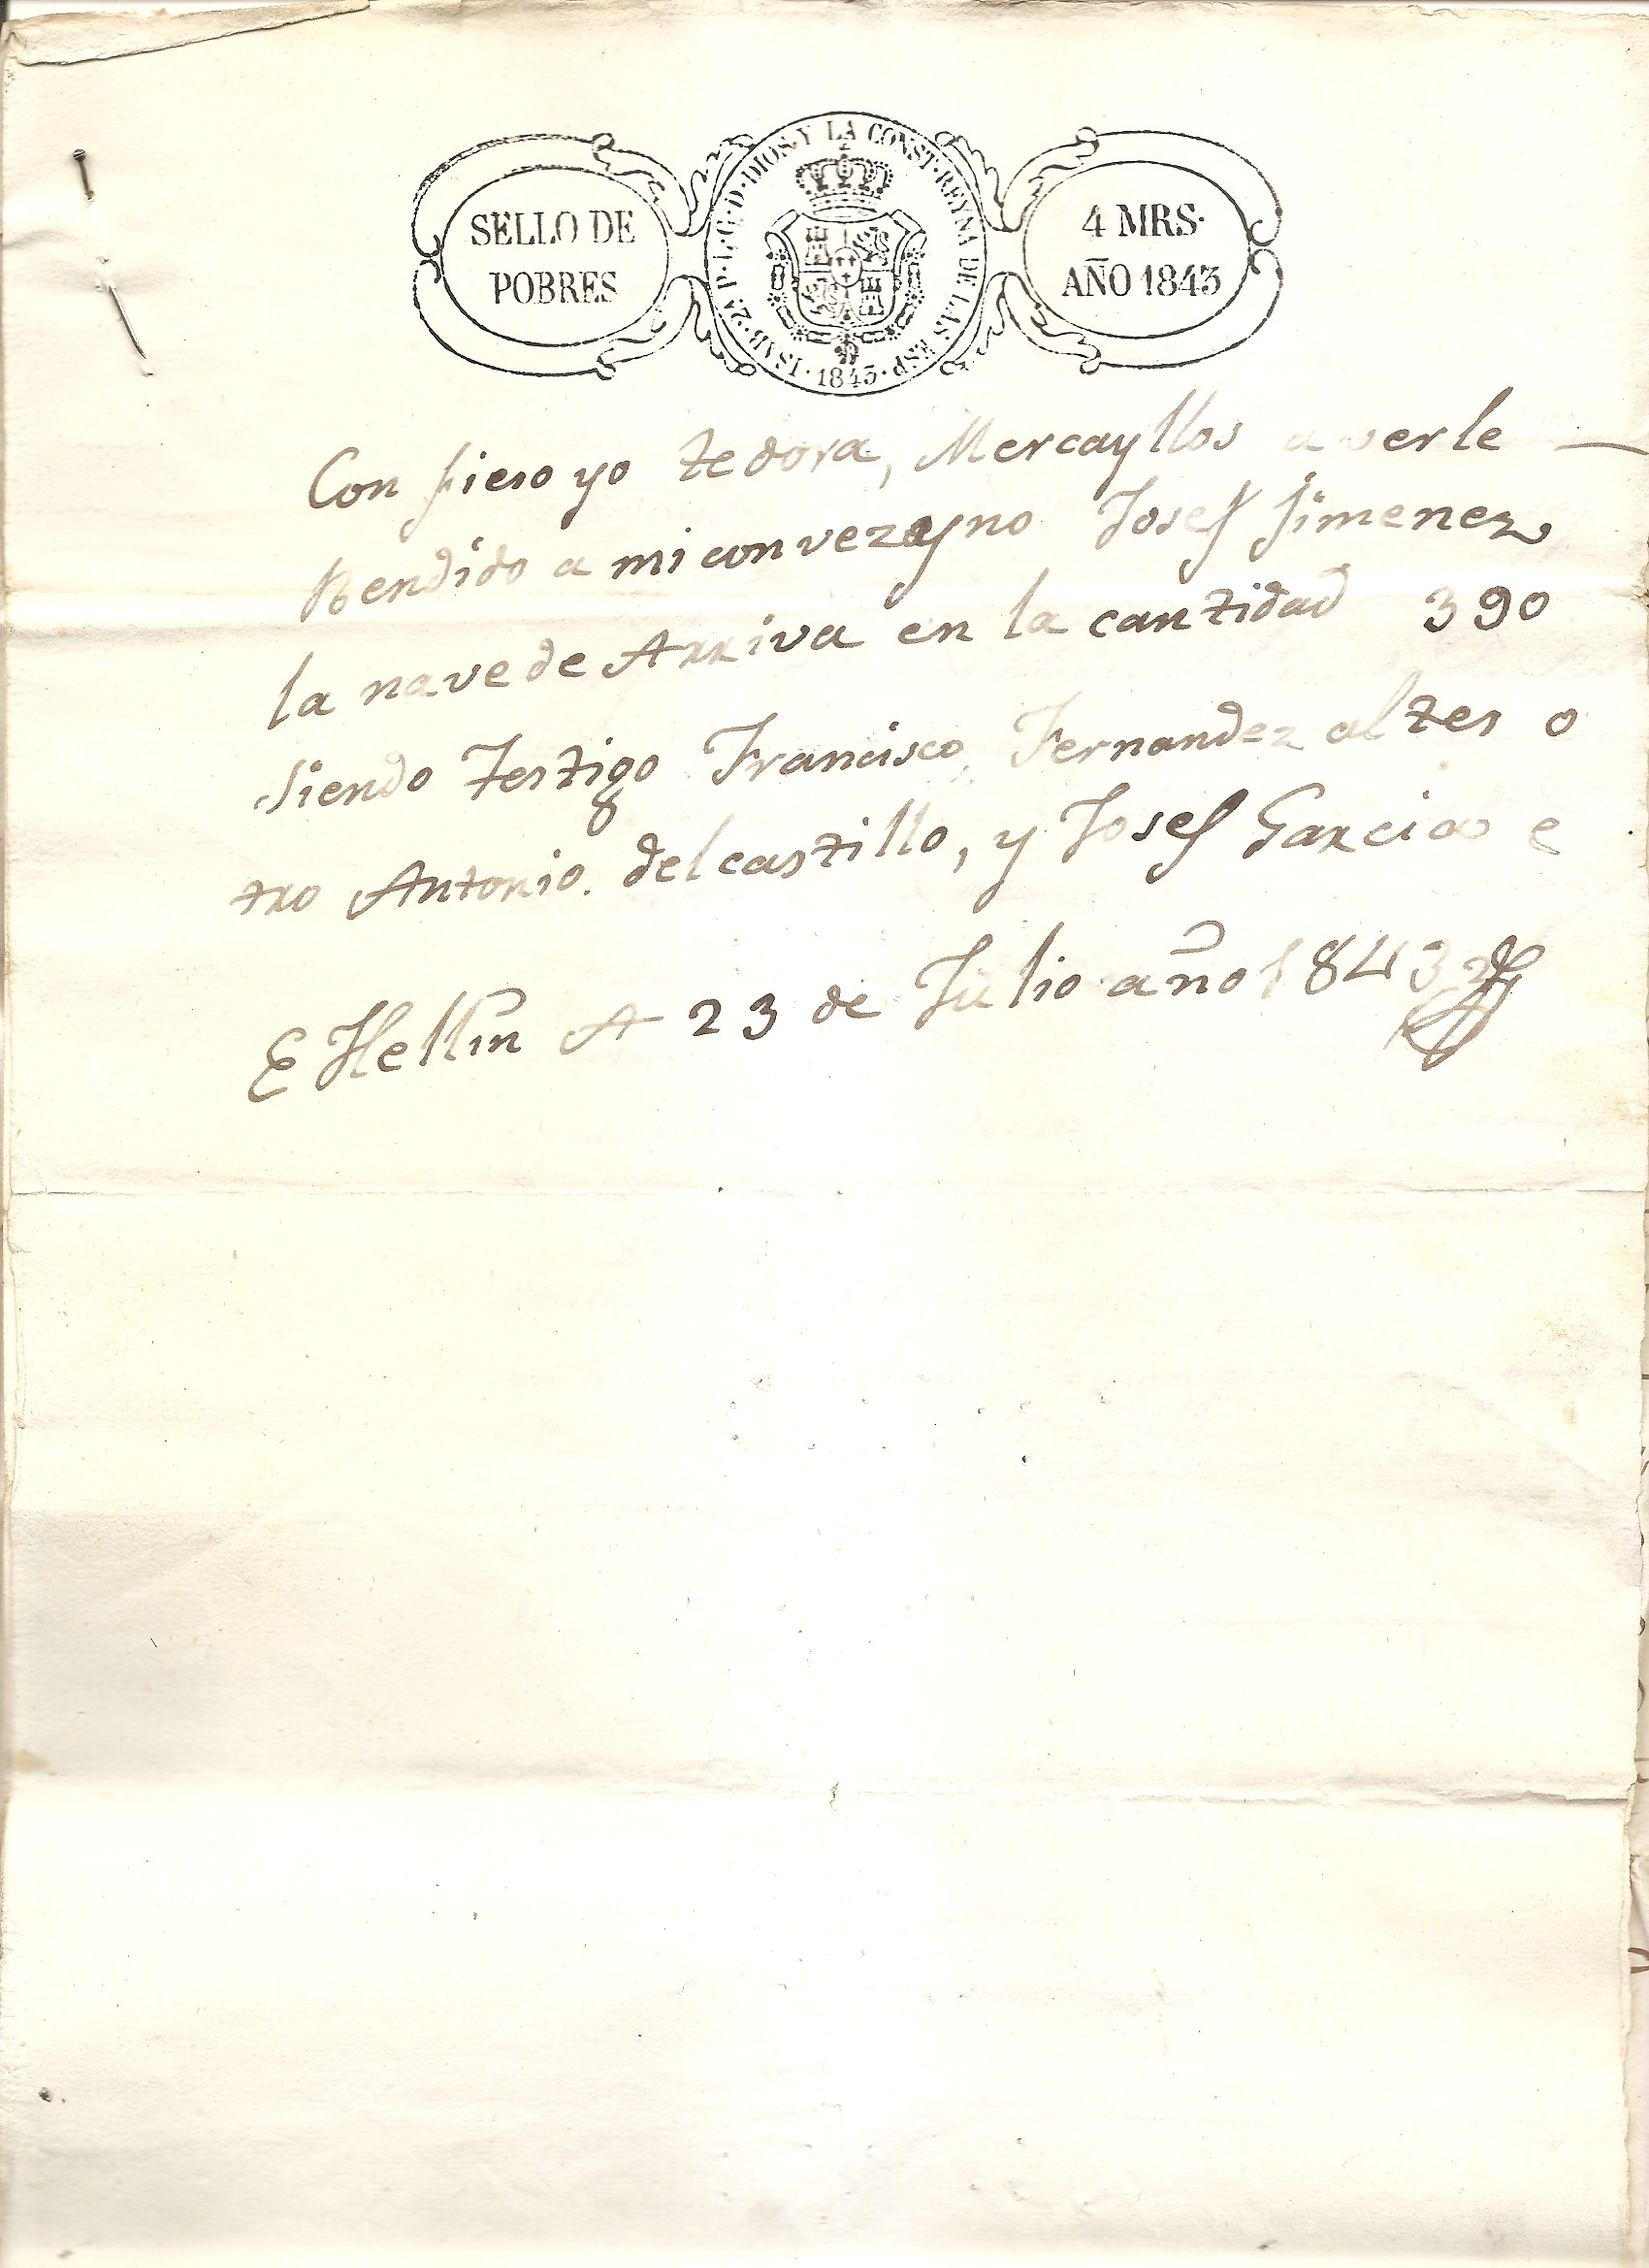 SELLO DE
POBRES
ISAB. 2ª P. L. G. D. DIOS. Y LA CONST. REYNA DE LAS ESP. 1843.
4 MRS.
AÑO 1843
Confieso yo tedora, Mercayllos a verle —
Bendido a mi convezayno Josef Jimenez
la nave de Arriva en la cantidad 390
siendo testigo Francisco, Fernandez altes o
tro Antonio. del castillo, y Josef Garcia e
E Hellin A 23 de Julio año 1843